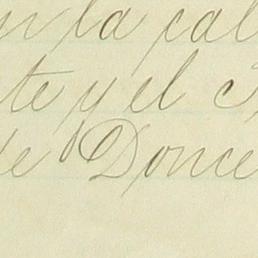 n la cal
te y el
de Donce